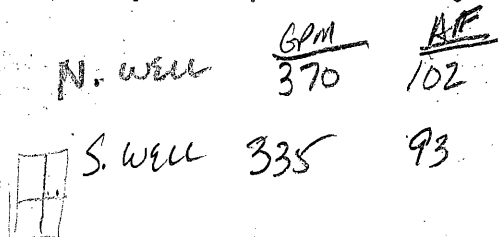 GPM AF
N. WELL 370 102
S. WELL 335 93